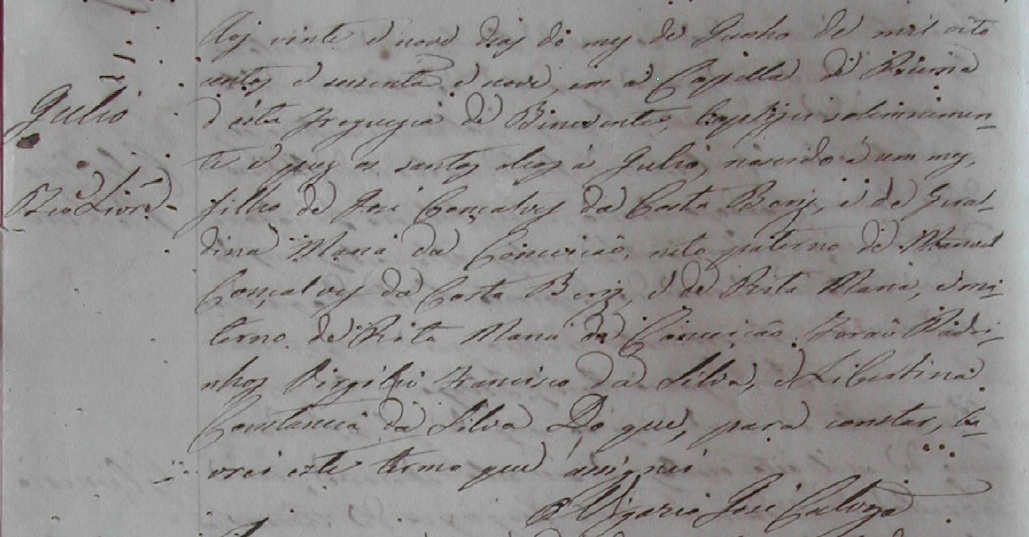 Aos vinte e nove dias do mez de Junho de mil oito
centos e sessenta e nove, em a Capella de
d'esta Freguezia de Benevente, baptizei solemnemen-
te e puz os santos oleos à Julio, nascido á um mez,
Julio
filho de José Gonçalves da Costa Beriz, e de Geral-
dina Maria da Conceição, neto paterno de Manoel
Gonçalves da Costa Beriz, e de Rita Maria, e ma-
terno de Rita Maria da Conceição. Forão Padri-
nhos Virgilio Francisco da Silva, e Libertina
Constancia da Silva Do que, para constar, la-
vrei este termo que assignei
O Vigario José